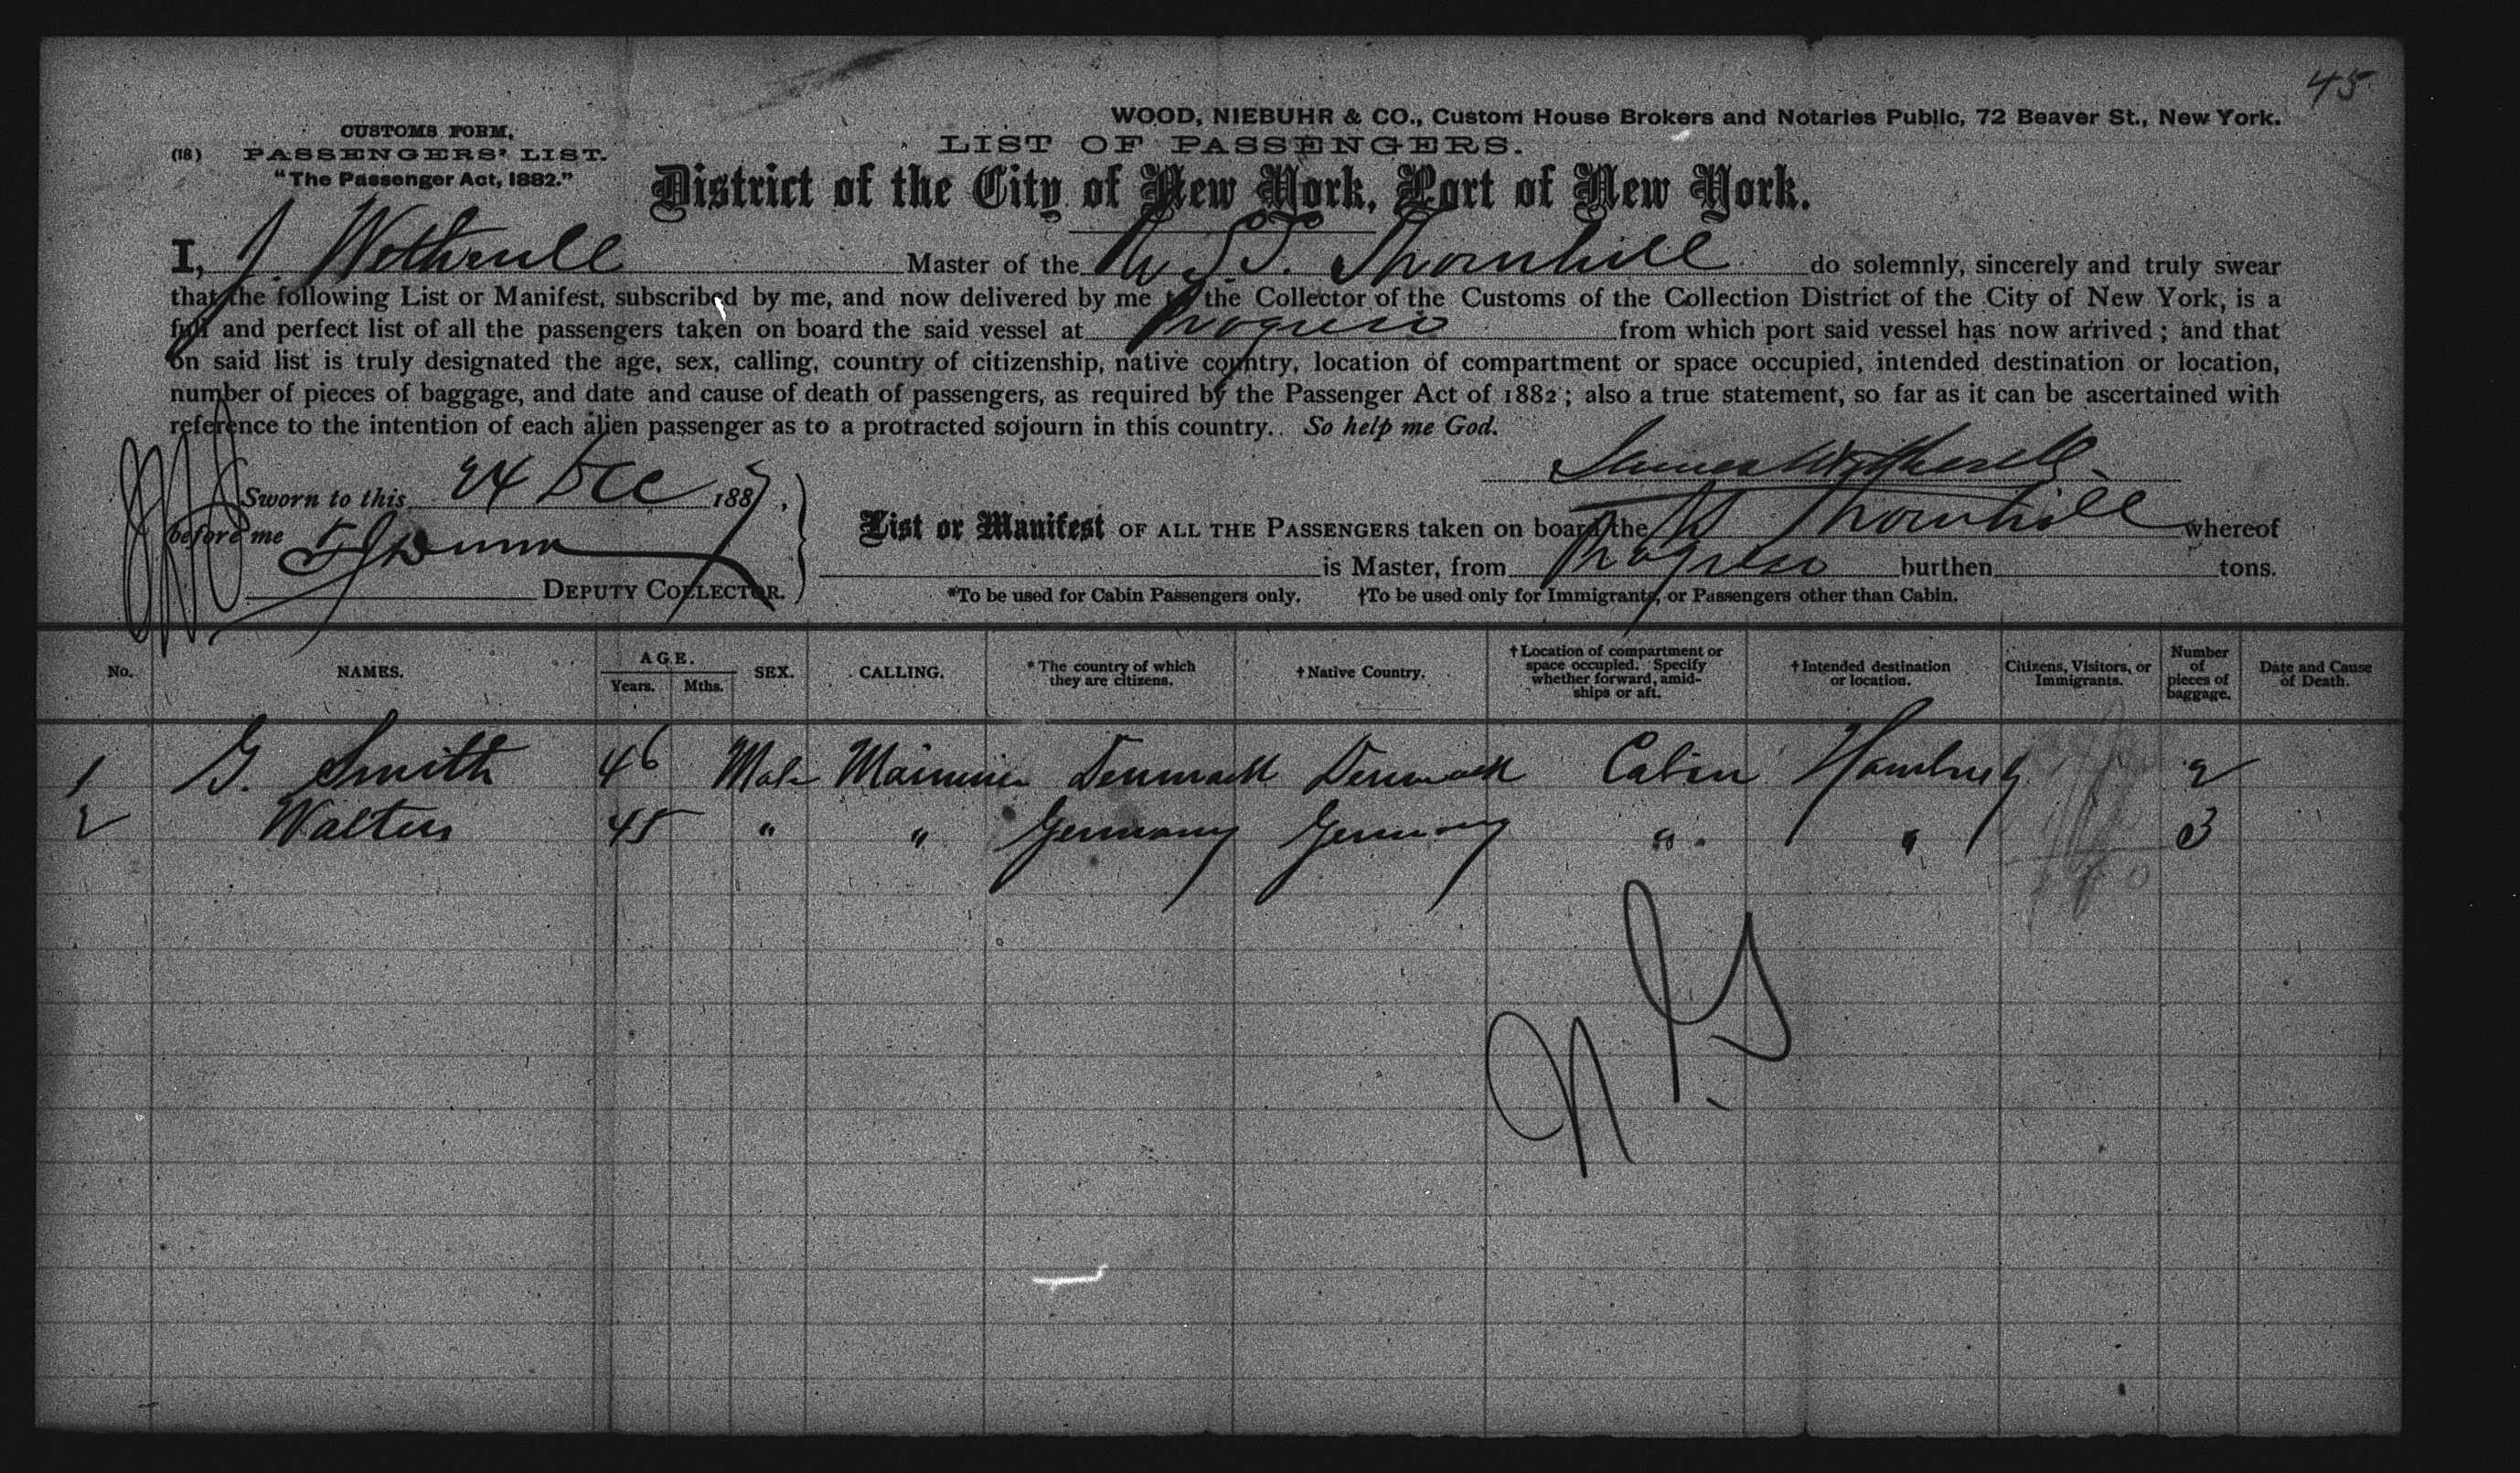 45
WOOD, NIEBUHR & CO., Custom House Brokers and Notaries Public, 72 Beaver St., New York.
CUSTOMS FORM,
(18) PASSENGERS' LIST.
"The Passenger Act, 1882."
LIST OF PASSENGERS.
District of the City of New York, Port of New York.
I, J. Wetherell Master of the Thornhill do solemnly, sincerely and truly swear
that the following List or Manifest, subscribed by me, and now delivered by me to the Collector of the Customs of the Collection District of the City of New York, is a
full and perfect list of all the passengers taken on board the said vessel at Progreso from which port said vessel has now arrived; and that
on said list is truly designated the age, sex, calling, country of citizenship, native country, location of compartment or space occupied, intended destination or location,
number of pieces of baggage, and date and cause of death of passengers, as required by the Passenger Act of 1882; also a true statement, so far as it can be ascertained with
reference to the intention of each alien passenger as to a protracted sojourn in this country. So help me God.
James Wetherell
Sworn to this 24 Dec 1887,
before me Dunn
DEPUTY COLLECTOR.
List or Manifest OF ALL THE PASSENGERS taken on board the Thornhill whereof
is Master, from Progreso burthen tons.
*To be used for Cabin Passengers only. †To be used only for Immigrants, or Passengers other than Cabin.
No. NAMES. AGE. Years. Mths. SEX. CALLING. *The country of which they are citizens. †Native Country. †Location of compartment or space occupied. Specify whether forward, amidships or aft. †Intended destination or location. Citizens, Visitors, or Immigrants. Number of pieces of baggage. Date and Cause of Death.
1 G. Smith 46 Male Mariner Denmark Denmark Cabin Hamburg 2
2 Walters 45 " " Germany Germany " " 3